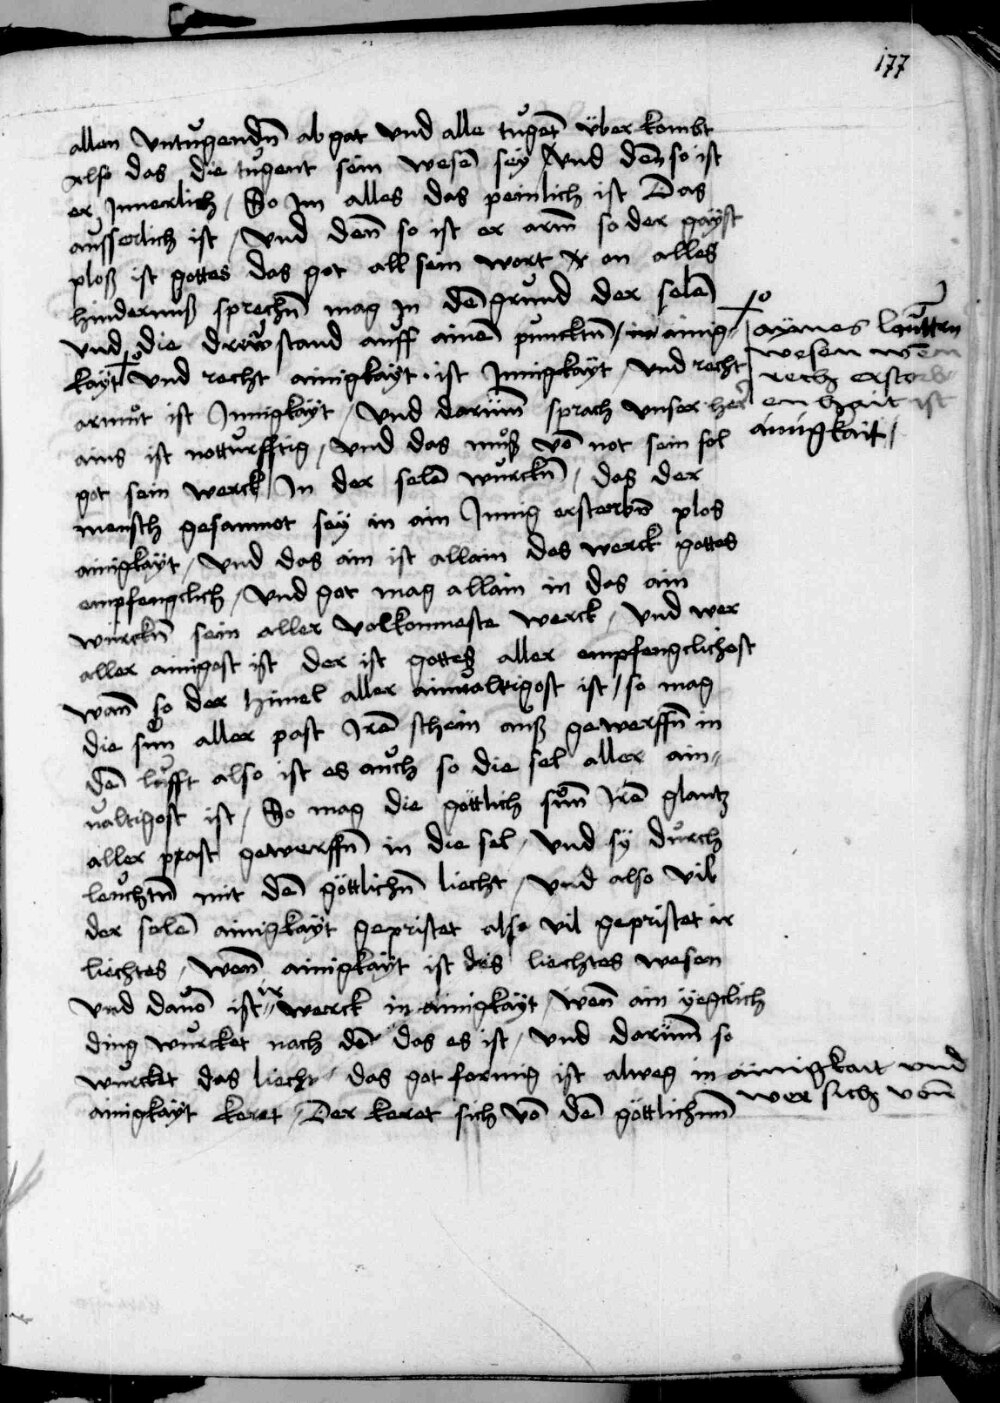 177
allen vntugendn̄ ab gat vnd alle tuget̄ über kombt
Also das die tugent sein wesē sey vnd den̄ so ist
er Innerlich / So Im alles das peinlich ist Das
ausserlich ist / Vnd den̄ so ist er arm̄ so der gayst
ploß ist gottes das got all sein wort on alles
hindernuß sprechn̄ mag In dē grund der selē
vnd die drew stand auff ainē puncktn̄ / in ainig-
kayt vnd recht ainigkayt · ist Innigkayt / vnd recht
armůt ist Innigkayt / Vnd darum̄ sprach vnser her
ains ist notturfftig / vnd das můß vō not sein sol
got sein werck In der selē wurckn̄ / das der
mensch gesammet sey in ain Innig ersterbn̄ plos
ainigkayt / Vnd das ain ist allain des werck gottes
empfengclich / Vnd got mag allain in das ain
würckn̄ sein aller volkommeste werck / Vnd wer
aller ainigost ist der ist gottes aller empfengclichest
wan̄ so der himel aller ainvaltigost ist / so mag
die sun̄ aller past Irē schein auß gewerffn̄ in
dē lufft also ist es auch so die sel aller ain-
ualtigost ist / So mag die göttlich sun̄ Irē glantz
aller past gewerffn̄ in die sel / Vnd sy durch
leuchtn̄ mit dē göttlichn̄ liecht / vnd also vil
der selē ainigkayt gepristet also vil gepristet ir
liechtes / wen̄ ainigkayt ist des liechtes wesen
vnd dauō ist ir werck in ainigkayt / wen̄ ain yeglich
ding wurcket nach dē das es ist / vnd darum̄ so
wurckt das liecht das got formig ist alweg in ainigkait vnd
ainigkayt keret / Der keret sich vō dē göttlichnn̄
aÿnes lauttern
wesen wen
rech erstorb
enhait ist
ainigkait /
wer sich vonn